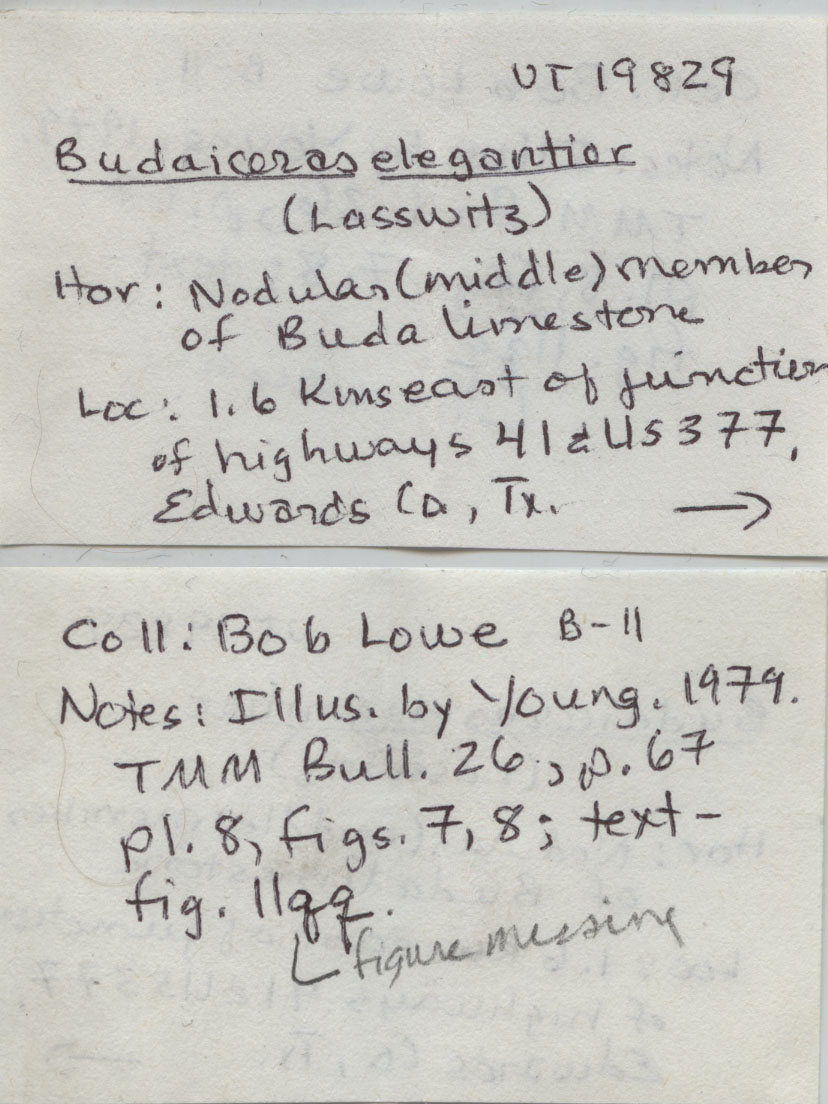 UT 19829
Budaiceras elegantior
(Lasswitz)
Hor: Nodular (middle) member
of Buda limestone
Loc: 1.6 Kms east of junction
of highways 41 & US 377,
Edwards Co, Tx. →
Coll: Bob Lowe B-11
Notes: Illus. by Young. 1979.
TMM Bull. 26, p. 67
pl. 8, figs. 7, 8; text-
fig. 11qq.
figure missing